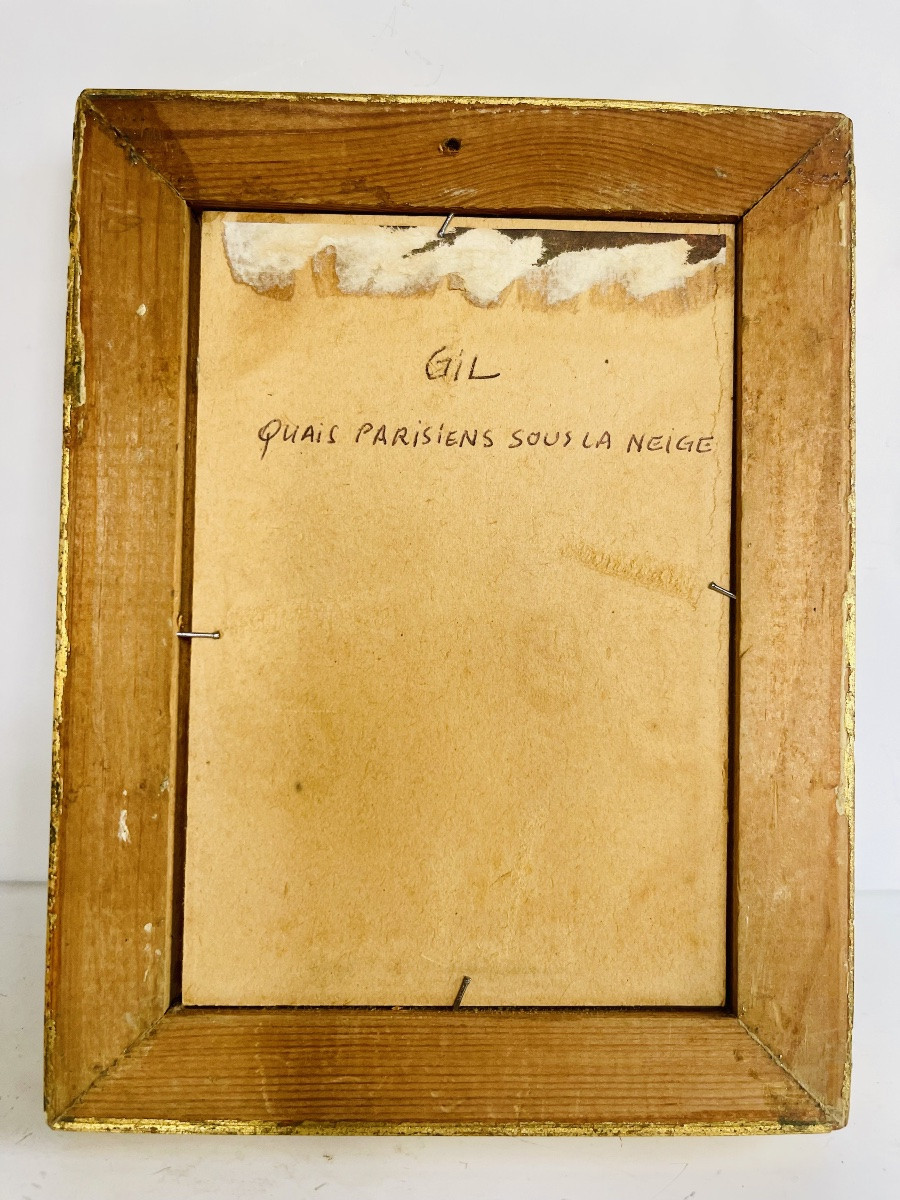 GiL
QUAIS PARISIENS SOUS LA NEIGE